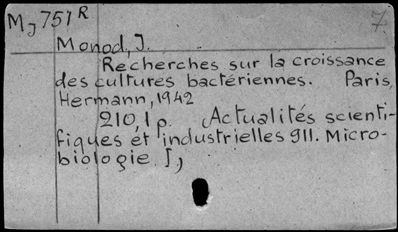 M, 751 R 7.
Monod, J.
Recherches sur la croissance
des cultures bactériennes. Paris,
Hermann, 1942
210,1 p. Actualités scienti-
fiques et industrielles 911. Micro-
biologie I,